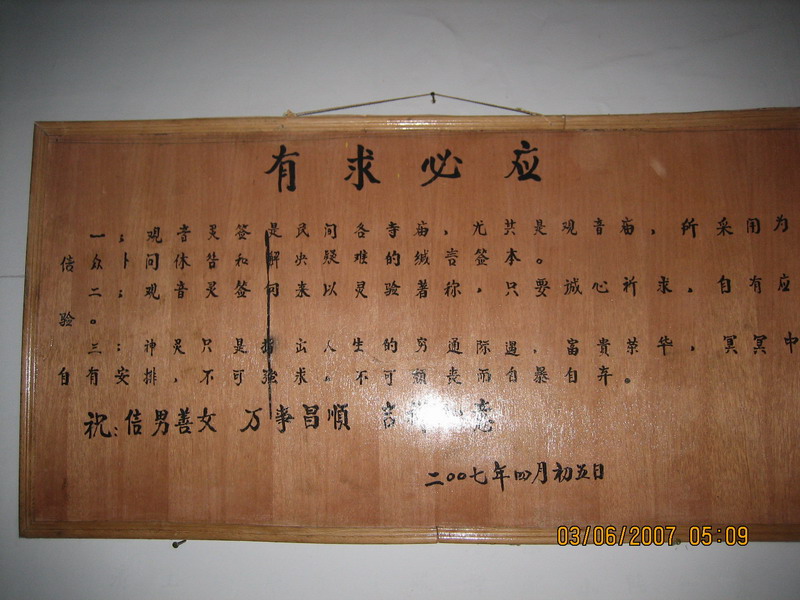 有求必应
一：观音灵签是民间各寺庙，尤其是观音庙，所采用为
信众卜问休咎和解决疑难的缄言签本。
二：观音灵签向来以灵验著称，只要诚心祈求，自有应
验。
三：神灵只是指出人生的穷通际遇，富貴荣华，冥冥中
自有安排，不可强求，不可颓丧而自暴自弃。
祝：信男善女 万事昌順 吉 意
二〇〇七年四月初五日
03/06/2007 05:09